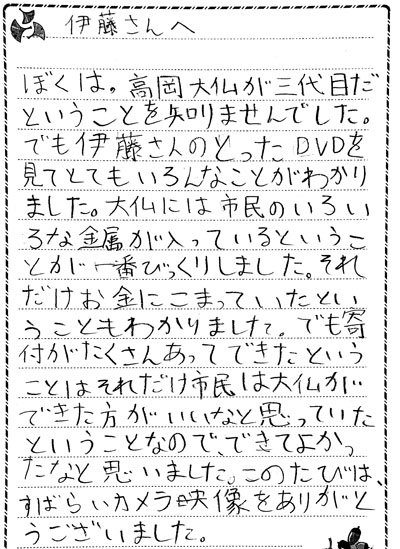 伊藤さんへ
ぼくは。高岡大仏が三代目だ
ということを知りませんでした。
でも伊藤さんのとったDVDを
見てとてもいろんなことがわかり
ました。大仏には市民のいろい
ろな金属が入っているというこ
とが一番びっくりしました。それ
だけお金にこまっていたとい
うこともわかりました。でも寄
付がたくさんあってできたという
ことはそれだけ市民は大仏が
できた方がいいなと思っていた
ということなので、できてよかっ
たなと思いました。このたびは、
すばらいカメラ映像をありがと
うございました。